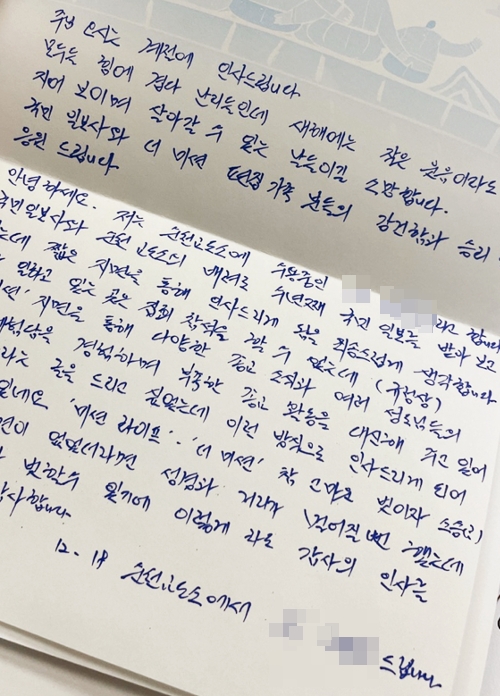 주님 오시는 계절에 인사드립니다
모두들 힘에 겹다 난리들인데 새해에는 작은 웃음이라도
지어 보이며 살아갈 수 있는 날들이길 소망합니다.
국민 일보사와 더 미션 편집 가족 분들의 강건함과 승리
응원 드립니다
안녕하세요. 저는 순천교도소에 수용중인 라고 합니다
국민일보사와 순천 교도소의 배려로 수년째 국민 일보를 받아 보고
있는데 짧은 지면을 통해 인사드리게 됨을 죄송스럽게 생각합니다
일하고 있는 곳은 집회 참석을 할 수 없는데 (규정상)
미션' 지면을 통해 다양한 종교 소식과 여러 성도님들의
을 경청하며 부족한 종교 활동을 대신해 주고 있어
라는 글을 드리고 싶었는데 이런 방식으로 인사드리게 되어
있네요 '미션 라이프'. '더 미션' 참 고마운 벗이자 스승(?)
이 없었더라면 성경과 거리가 멀어질 뻔 했는데
벗할수 있기에 이렇게 라도 감사의 인사를
감사합니다.
12. 18 순천교도소에서 드립니다